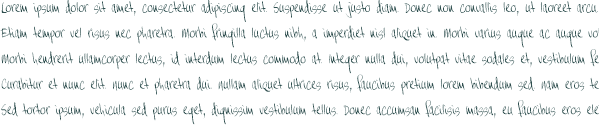 Lorem ipsum dolor sit amet, consectetur adipiscing elit. Suspendisse ut justo diam. Donec non convallis leo, ut laoreet arcu.
Etiam tempor vel risus nec pharetra. Morbi fringilla luctus nibh, a imperdiet nisl aliquet in. Morbi varius augue ac augue vo
Morbi hendrerit ullamcorper lectus, id interdum lectus commodo at. Integer nulla dui, volutpat vitae sodales et, vestibulum fe
Curabitur et nunc elit. Nunc et pharetra dui. Nullam aliquet ultrices risus, faucibus pretium lorem bibendum sed. Nam eros te
Sed tortor ipsum, vehicula sed purus eget, dignissim vestibulum tellus. Donec accumsan facilisis massa, eu faucibus eros ele